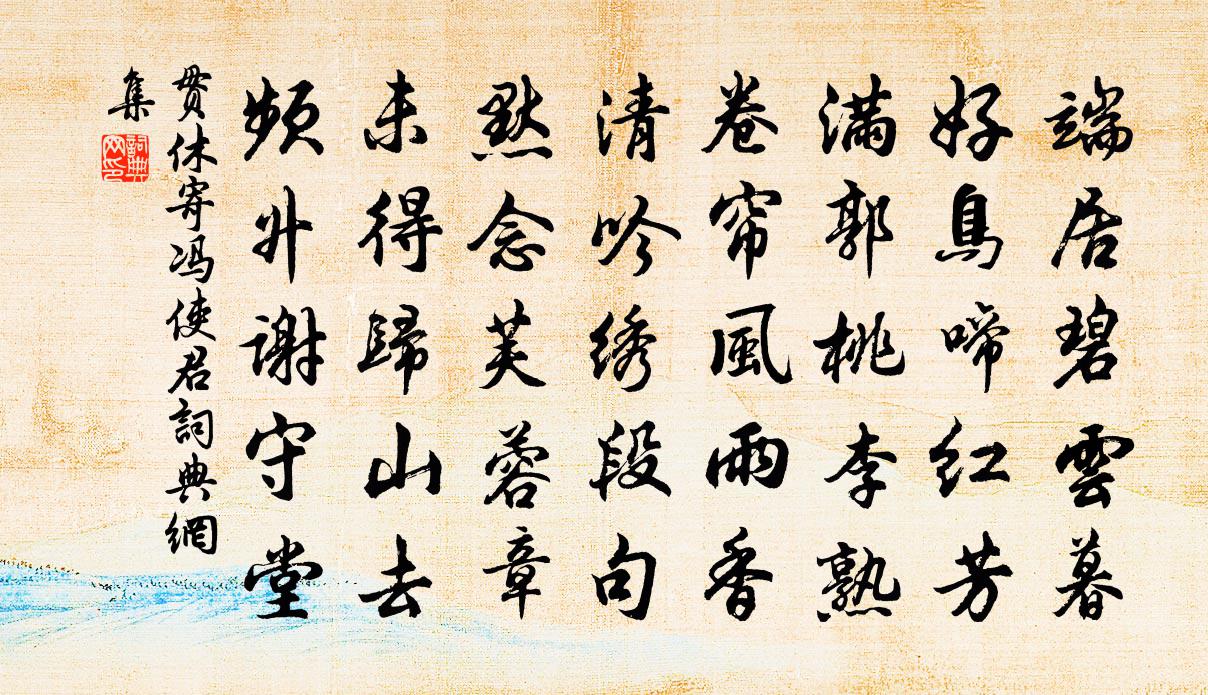 端居碧雲暮
好鳥啼红芳
滿郭桃李熟
卷帘風雨香
清吟绣段句
默念芙蓉章
未得歸山去
频升謝守堂
贯休寄冯使君詞典網
集
詞典
网印